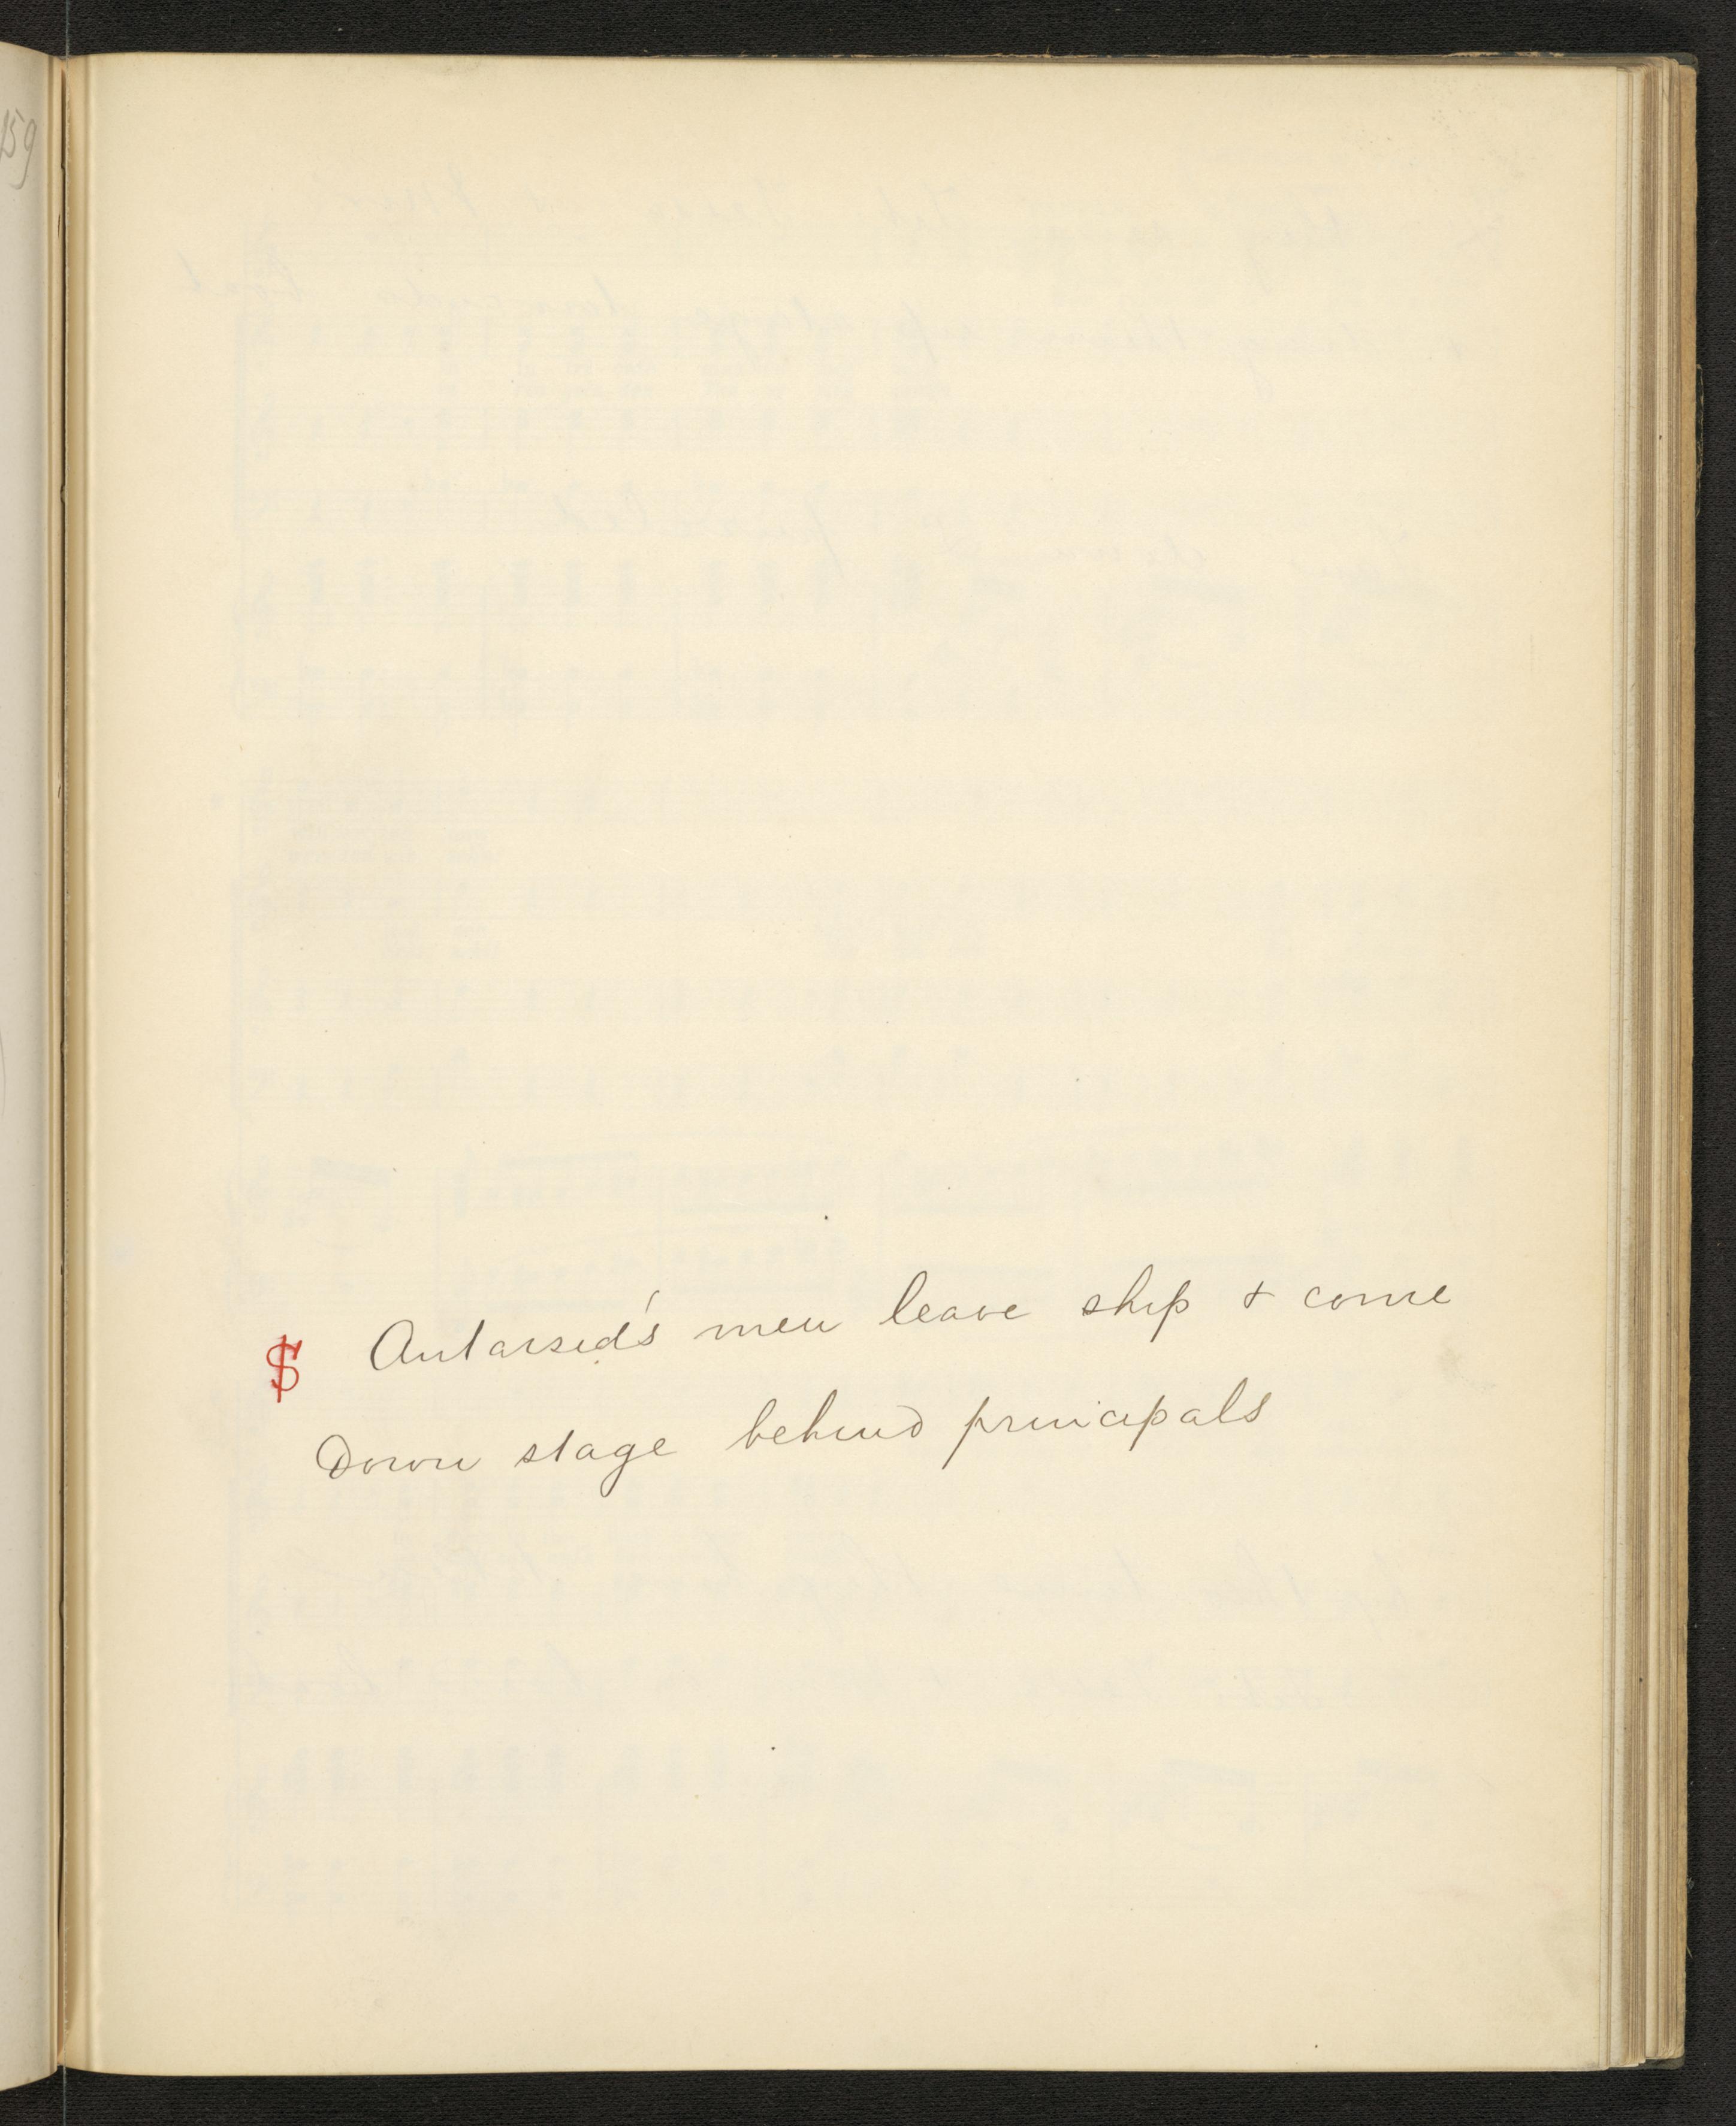 159
$ Antarsid's men leave ship & come
Down stage behind principals